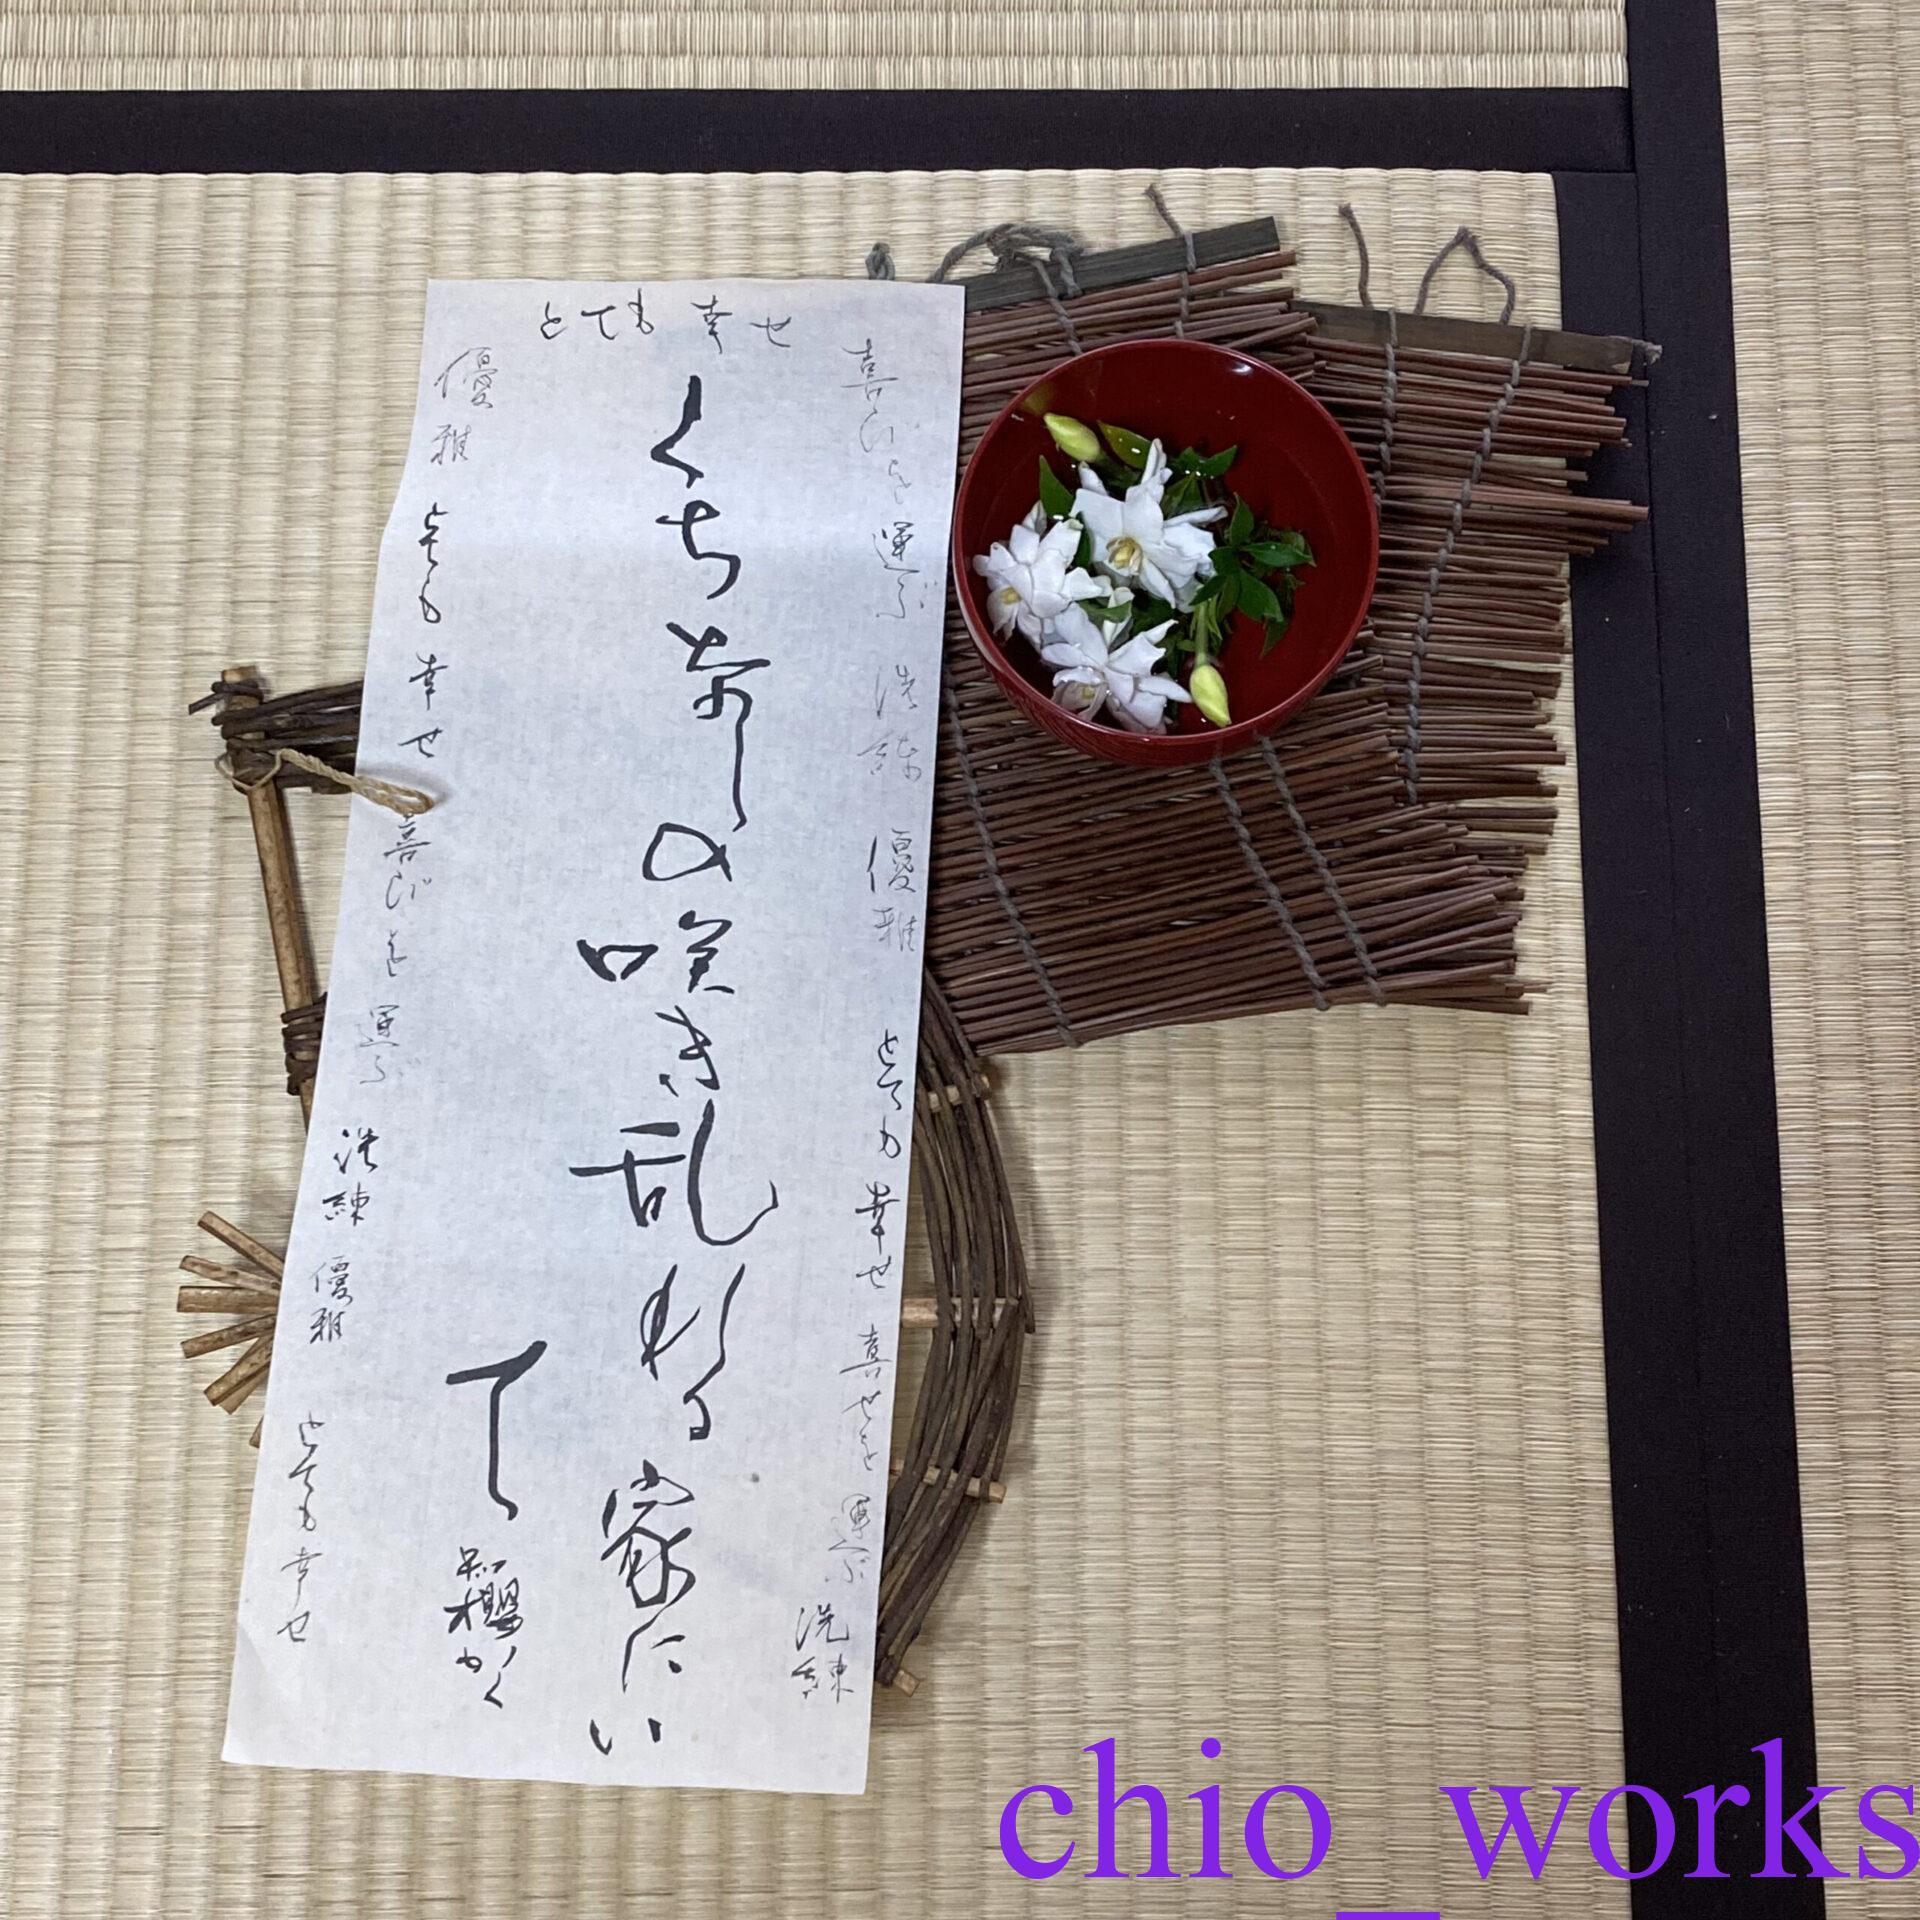 とても幸せ
喜びを運ぶ 洗練 優雅 とても幸せ 喜せを運ぶ 洗練
くちなしの咲き乱れる家にい
て
優雅 とても幸せ 喜びを運ぶ 洗練 優雅 とても幸せ
chio_works